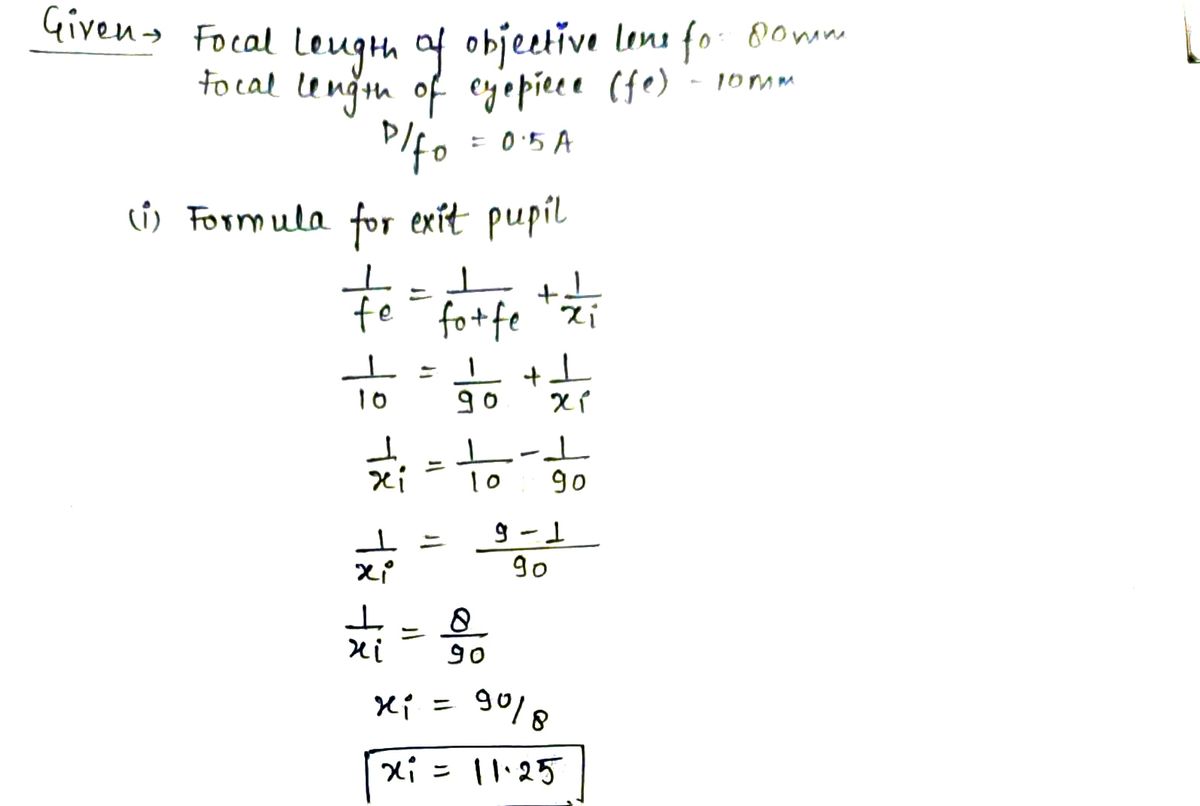 Given → Focal Length of objective lens fo = 80mm
Focal length of eyepiece (fe) - 10mm
D/fo = 0.5 A
(i) Formula for exit pupil
1/fe = 1/fo+fe + 1/xi
1/10 = 1/90 + 1/xi
1/xi = 1/10 - 1/90
1/xi = 9-1/90
1/xi = 8/90
xi = 90/8
xi = 11.25